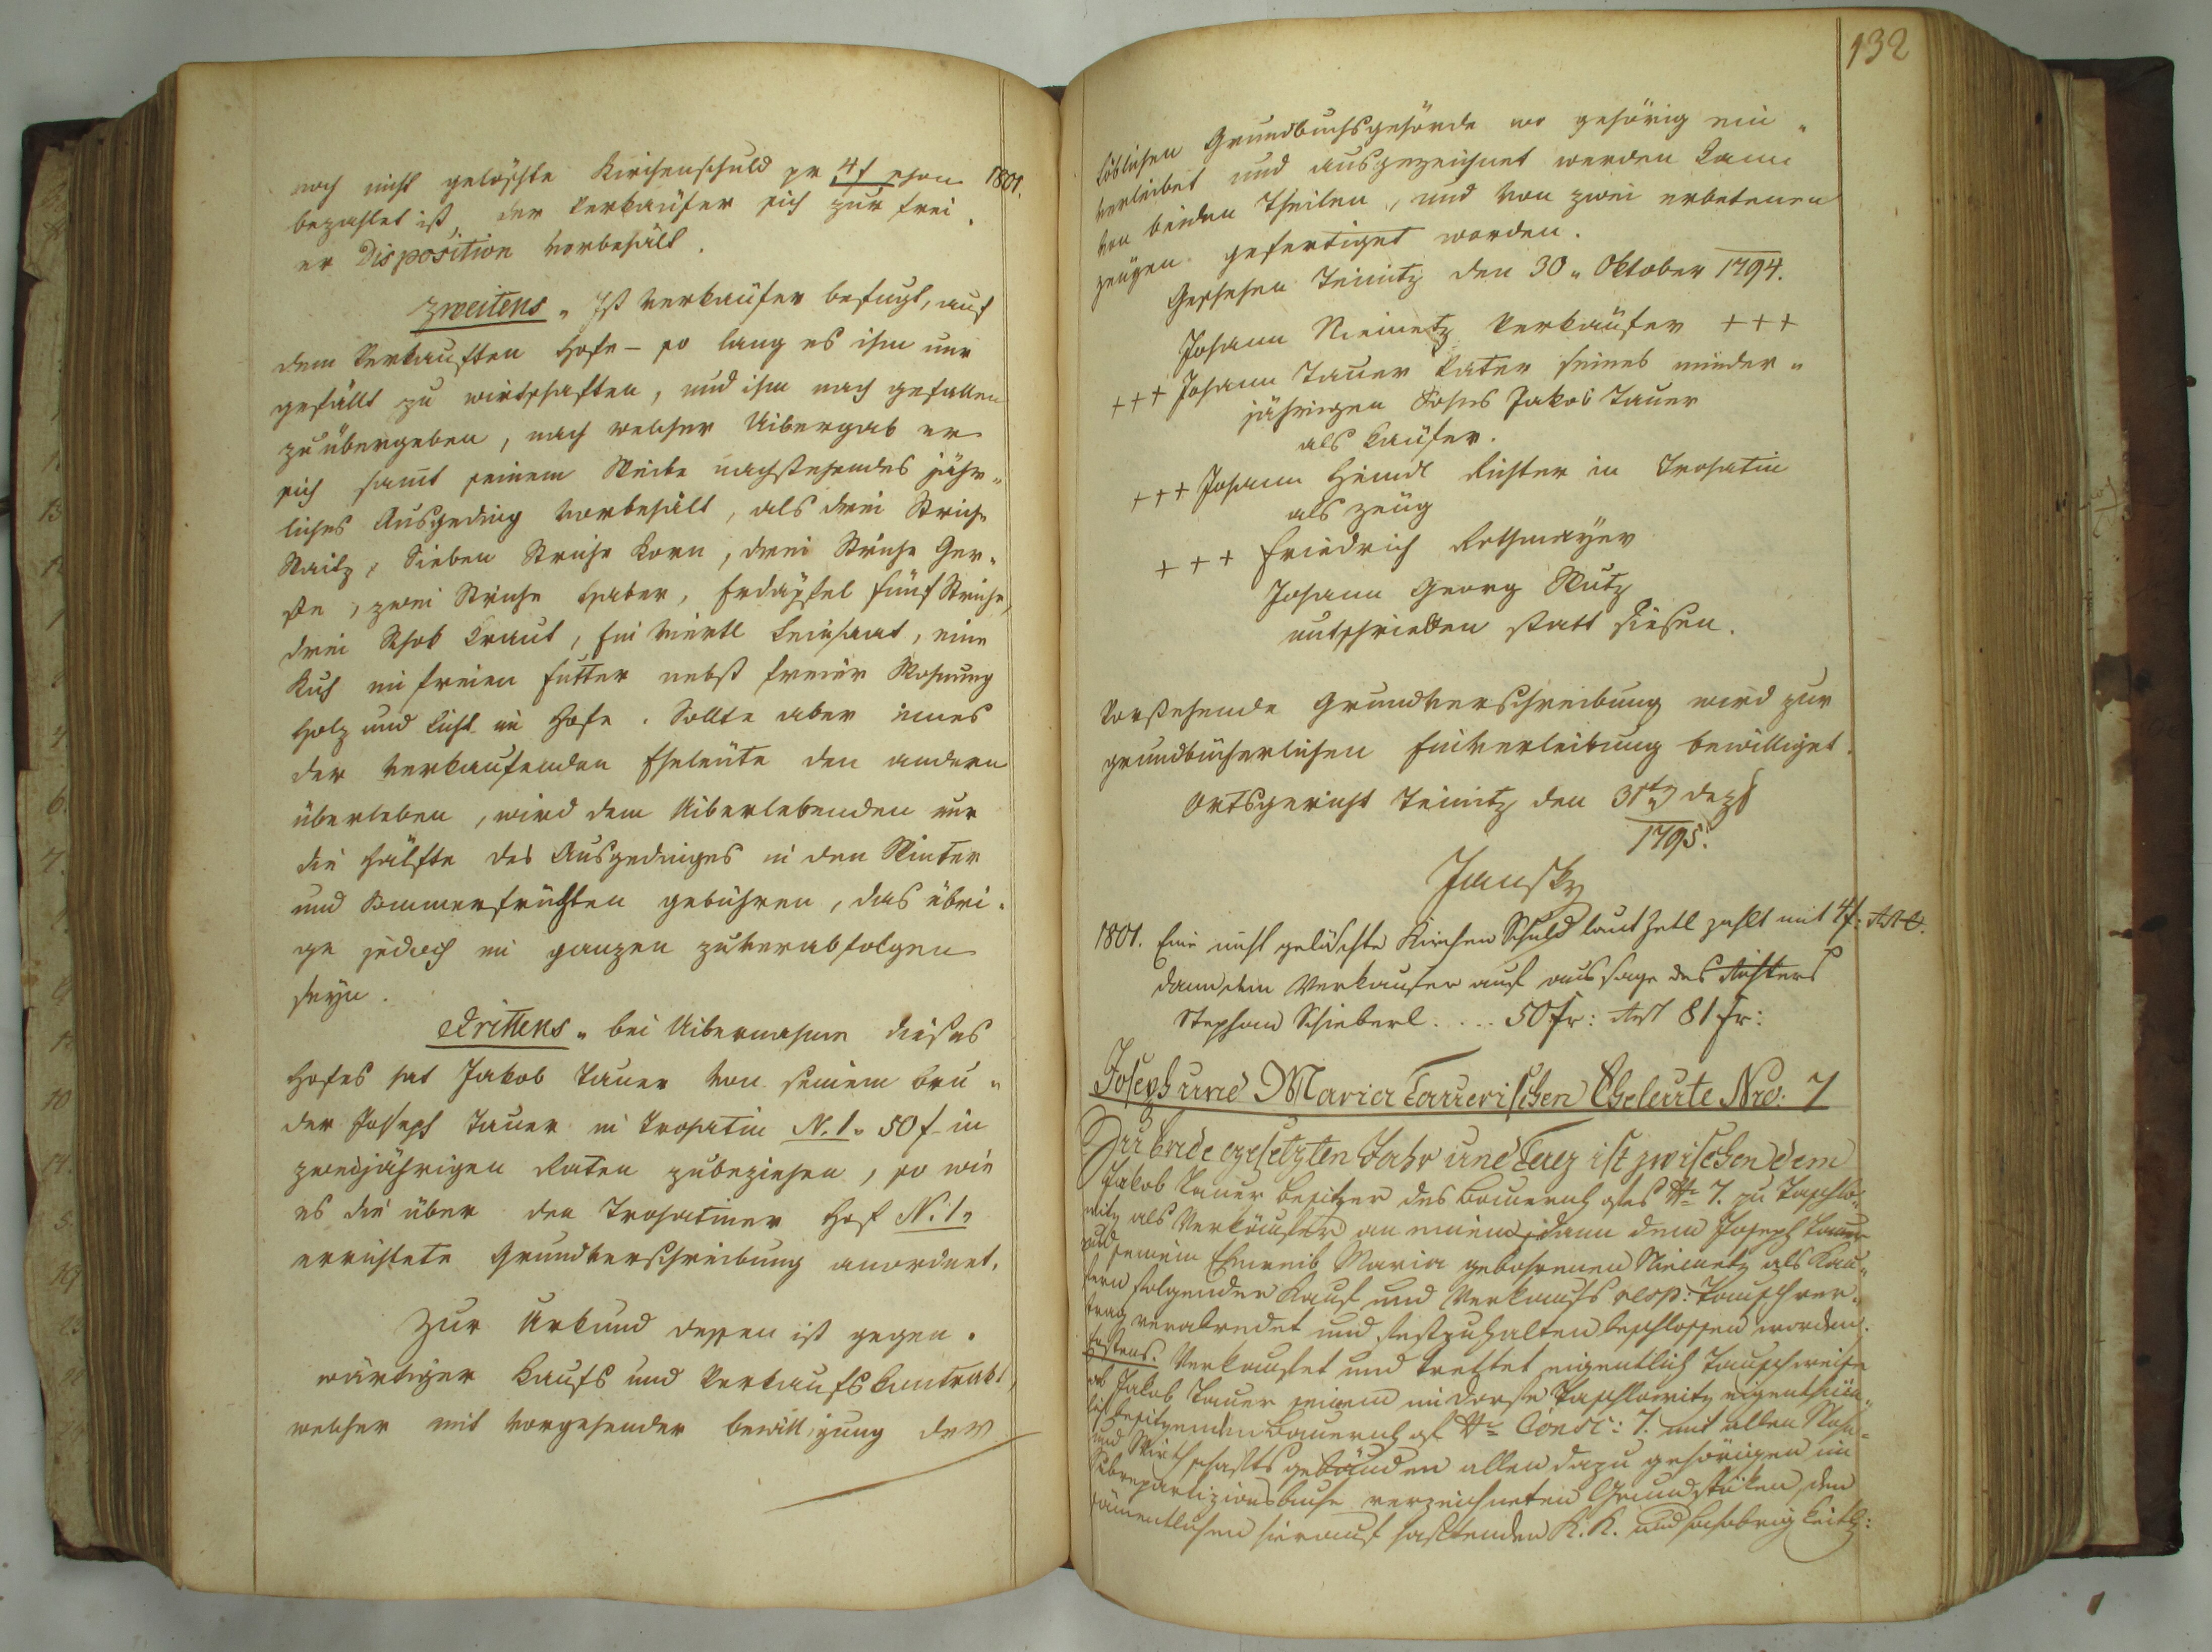 noch nicht gelöschte Kirchenschuld pr 4 f schon 1801.
bezahlet ist, der Verkaüfer sich zur frei„
er Disposition vorbehält.
Zweitens„ Ist Verkaüfer befugt, auf
dem Verkauften Hofe – so lang es ihm nur
gefällt zu wirtschaften, und ihn nach gefallen
zuübergeben, nach welcher Uibergab er
sich samt seinem Weibe nachstehendes jähr„
liches Ausgeding vorbehält, als drei Striche
Waitz, Sieben Striche Korn, drei Striche Ger„
ste, zwei Striche Haber, Erdäpfel fünf Striche,
drei Schok Kraut, Ein Viertl Leinsaat, eine
Kuh im freien Futter nebst freier Wohnung
Holz und Licht im Hofe. Sollte aber eines
der verkaufenden Eheleüte den andern
überleben, wird dem Uiberlebenden nur
die Hälfte des Ausgedinges in den Winter
und Sommerfrüchten gebühren, das übri„
ge jedoch im ganzen zuverabfolgen
seyn.
Drittens„ bei Uibernahme dieses
Hofes hat Jakob Tauer von seinem Bru„
der Joseph Tauer in Trohatin N. 1. 50 f in
zweijährigen Raten zubeziehen, so wie
es die über den Trohatiner Hof N. 1.
errichtete Grundverschreibung anordnet.
Zur Urkund dessen ist gegen„
wärtiger Kaufs und Verkaufs Kontrakt,
welcher mit vorgehender bewilligung der
132
löblichen Grundbuchsbehörde wo gehörig ein„
verleibet und ausgezeichnet werden kann
von beiden Theilen, und von zwei erbetenen
Zeugen gefertiget worden.
Geschehen Teinitz den 30„ Oktober 1794.
Johann Neimetz Verkäufer +++
+++ Johann Tauer Vater seines minder„
jährigen Sohns Jakob Tauer
als Kaüfer.
+++ Johann Heindl Richter in Trohatin
als Zeüg
+++ Friedrich Rothmayer
Johann Georg Wutz
unterschrieben statt diesen.
Vorstehende Grundverschreibung wird zur
grundbücherlichen Einverleibung bewilliget.
Ortsgericht Teinitz den 31ten Dezb
1795.
Jansky
1801. Eine nicht gelöschte Kirchen Schuld laut Zetl zahlt mit 4 f:
dann dem Verkaufer auf aussage des Richters
Stephan Schieberl .... 50 fr: Rest 81 fr:
Joseph und Maria Tauerischen Eheleute Nro: 7
Zu Ende gesetzten Jahr und Tag ist zwischen dem
Jakob Tauer besitzer des Bauernhofes Nr 7. zu Taschlo„
witz als Verkäufer an einem, dann dem Joseph Tauer
und seinem Eheweib Maria gebohrenen Niemetz als Kau„
fern folgender Kauf und Verkaufs resp: Tauschver„
trag verabredet und festzuhalten beschlossen worden.
Erstens. Verkaufet und trettet eigentlich Tauschweise
ab Jakob Tauer seinen im Dorfe Taschlowitz eigenthüm„
lich besitzenden Bauernhof Nr Consc: 7. mit allen Wohn„
und Wirthschaftsgebäuden allen dazu gehörigen im
Subrepartizionsbuche verzeichneten Grundstüken, den
sämentlichen hierauf haftenden K. K. und hochobrigkeitl: